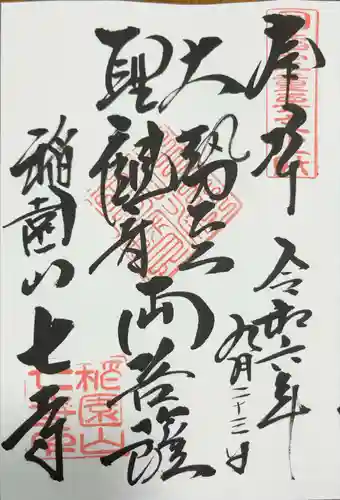 奉拝
令和六年
九月二十三日
大勢至
聖観音
両菩薩
稲園山
七寺
稲園山
七寺